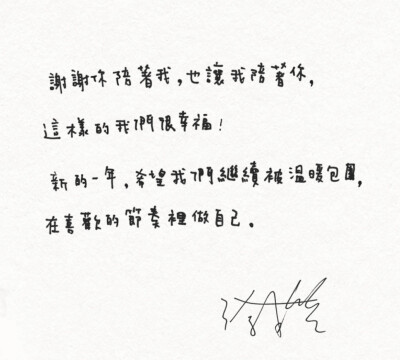 謝謝你陪著我,也讓我陪著你,
這樣的我們很幸福!
新的一年,希望我們繼續被溫暖包圍,
在喜歡的節奏裡做自己。